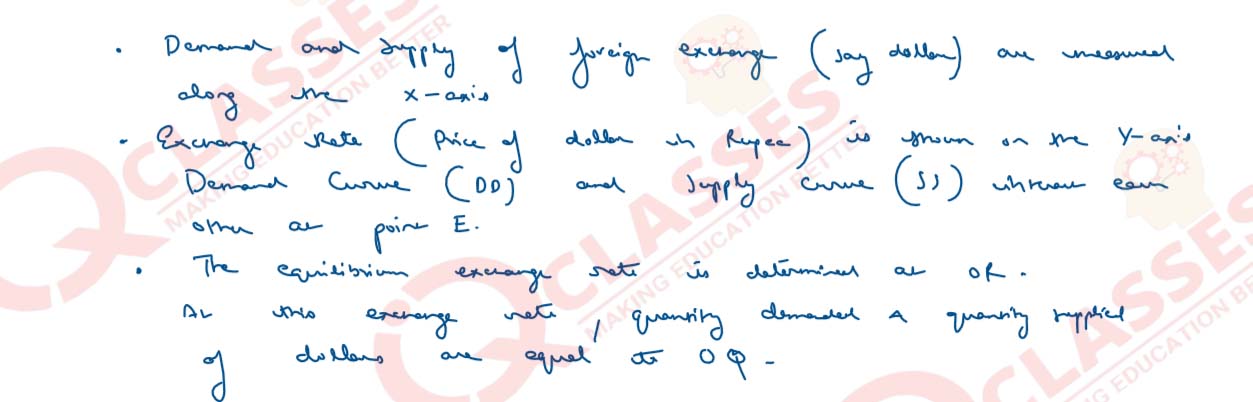 . Demand and Supply of foreign exchange (say dollar) are measured
along the x-axis
- Exchange Rate (Price of dollar in Rupee) is shown on the Y-axis
Demand Curve (DD) and Supply Curve (SS) intersect each
other at point E.
. The equilibrium exchange rate is determined at OR.
At this exchange rate, quantity demanded & quantity supplied
of dollars are equal to OQ -
QCLASSES
MAKING EDUCATION BETTER